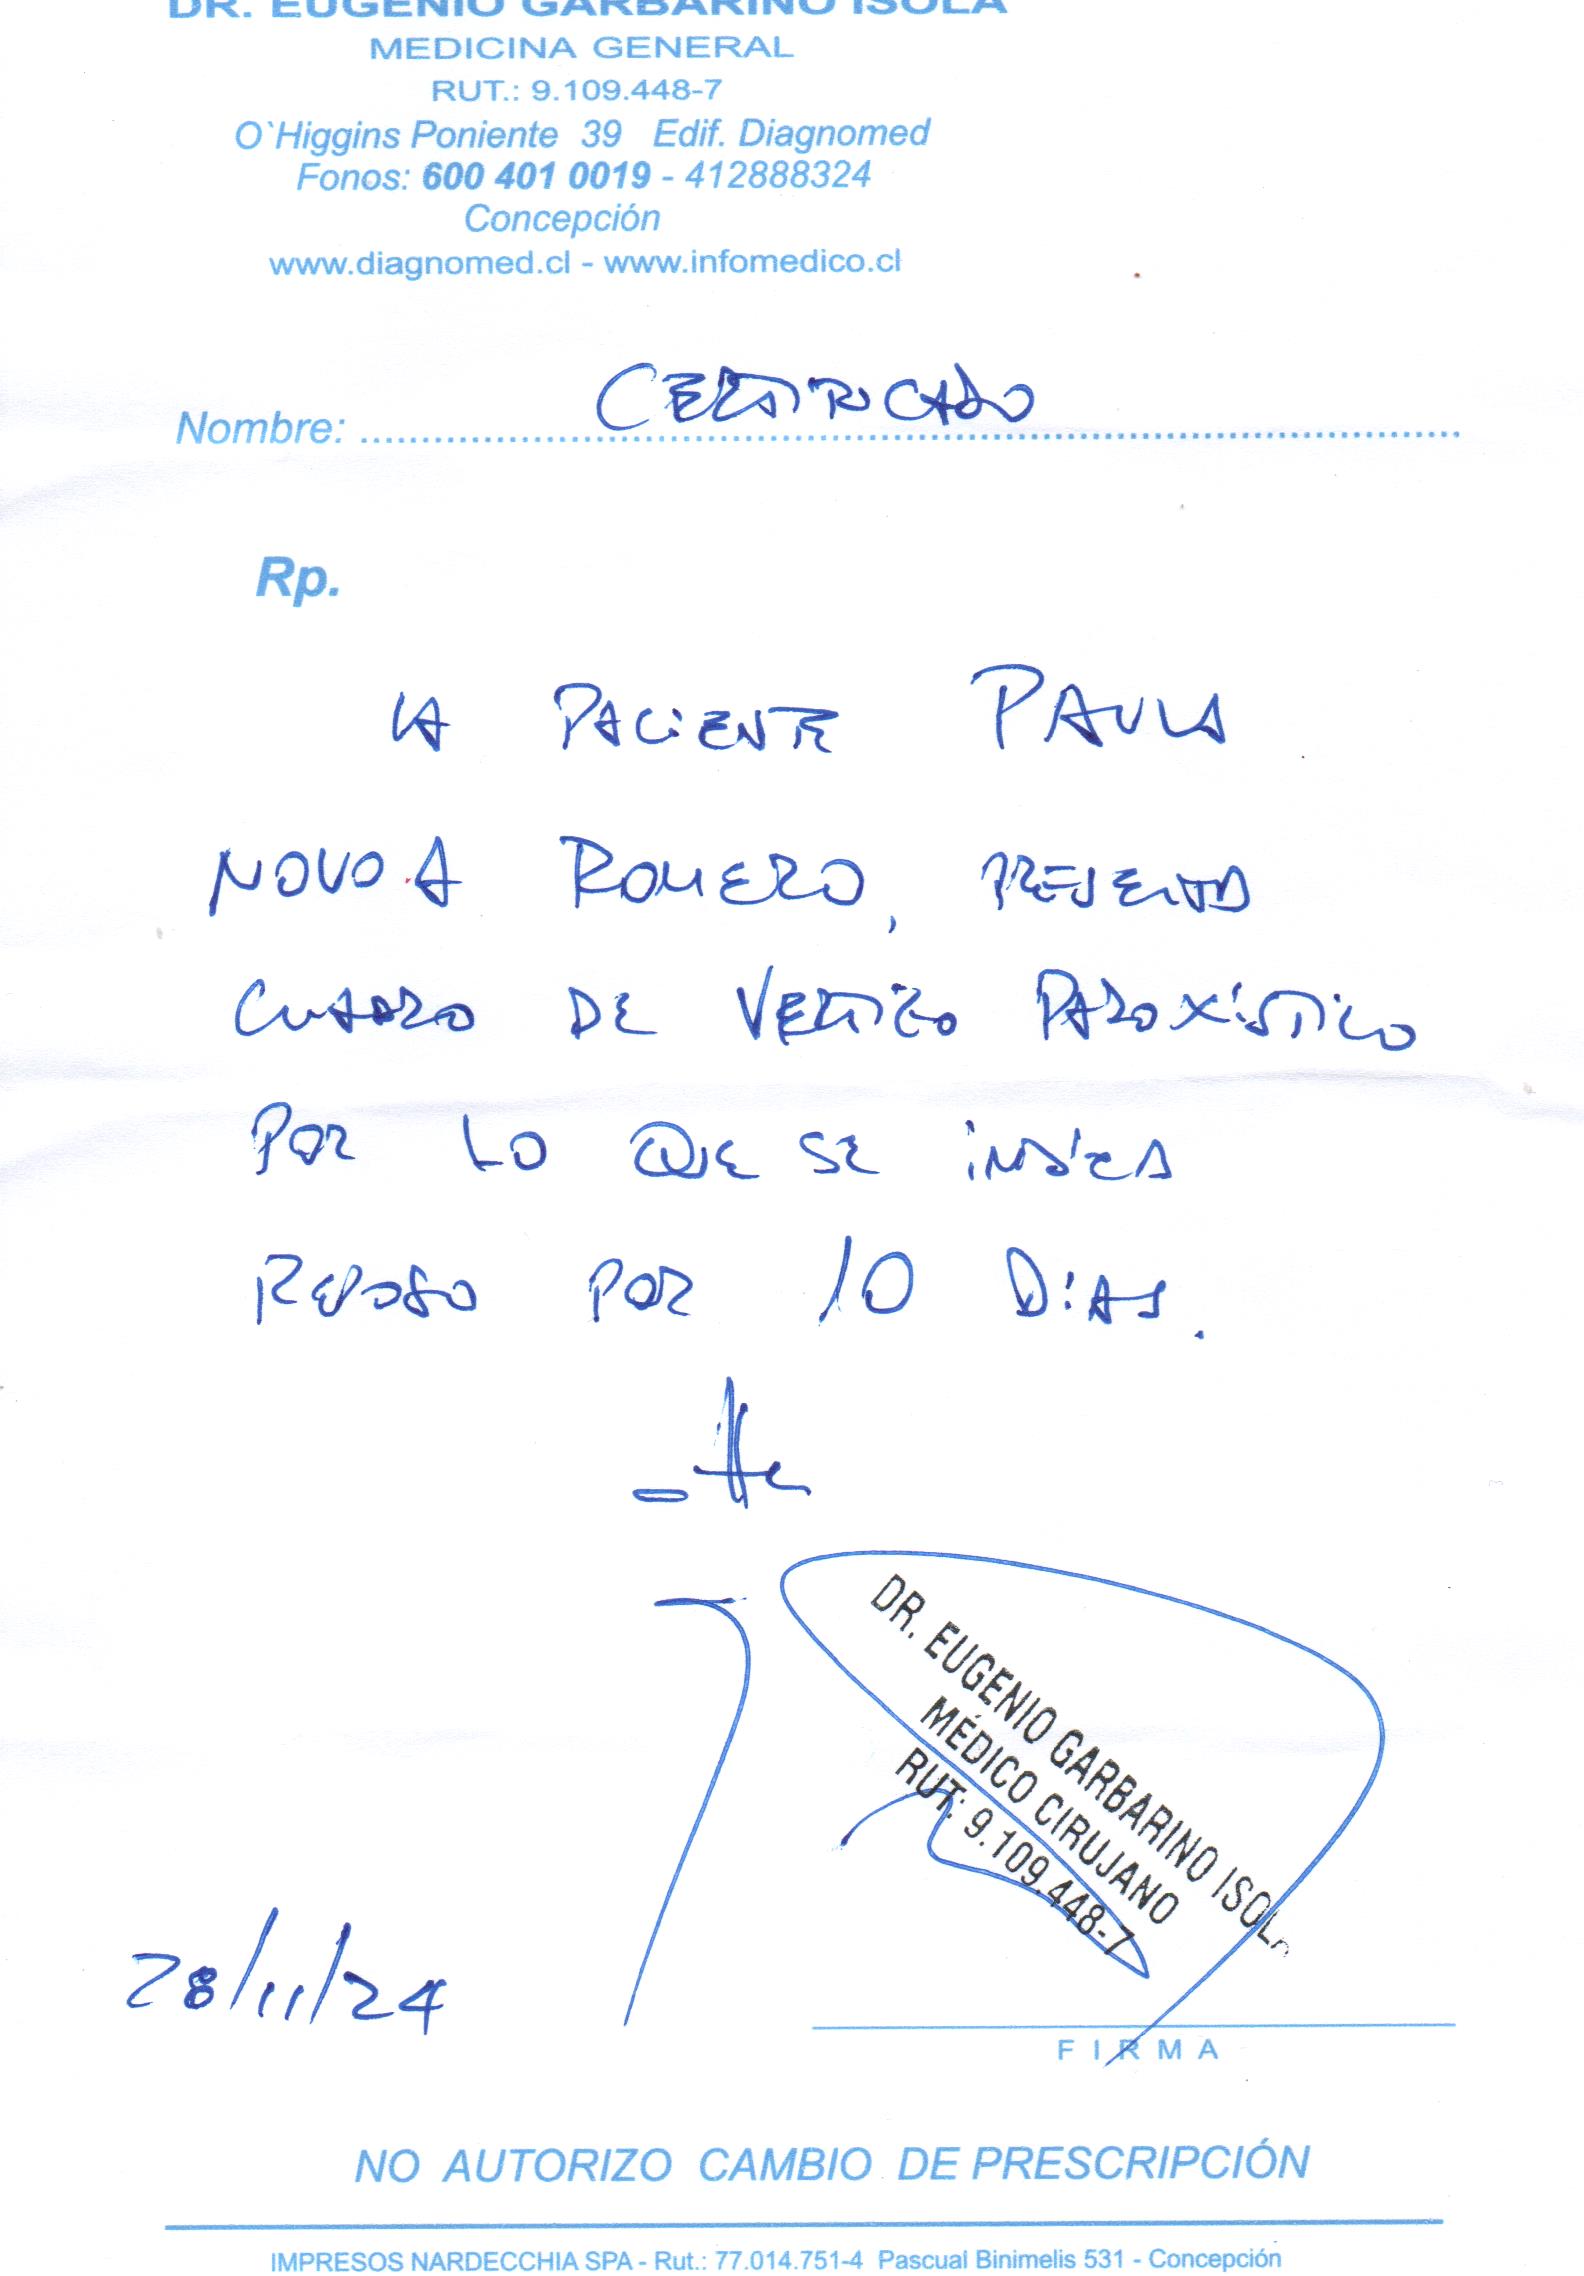 DR. EUGENIO GARBARINO ISOLA
MEDICINA GENERAL
RUT.: 9.109.448-7
O`Higgins Poniente 39 Edif. Diagnomed
Fonos: 600 401 0019 - 412888324
Concepción
www.diagnomed.cl - www.infomedico.cl
Nombre: CERTIFICADO
Rp.
LA PACIENTE PAULA
NOVOA ROMERO, PRESENTA
CUADRO DE VERTIGO PAROXÍSTICO
POR LO QUE SE INDICA
REPOSO POR 10 DÍAS.
DR. EUGENIO GARBARINO ISOL
MÉDICO CIRUJANO
RUT: 9.109.448-7
28/11/24
FIRMA
NO AUTORIZO CAMBIO DE PRESCRIPCIÓN
IMPRESOS NARDECCHIA SPA - Rut.: 77.014.751-4 Pascual Binimelis 531 - Concepción